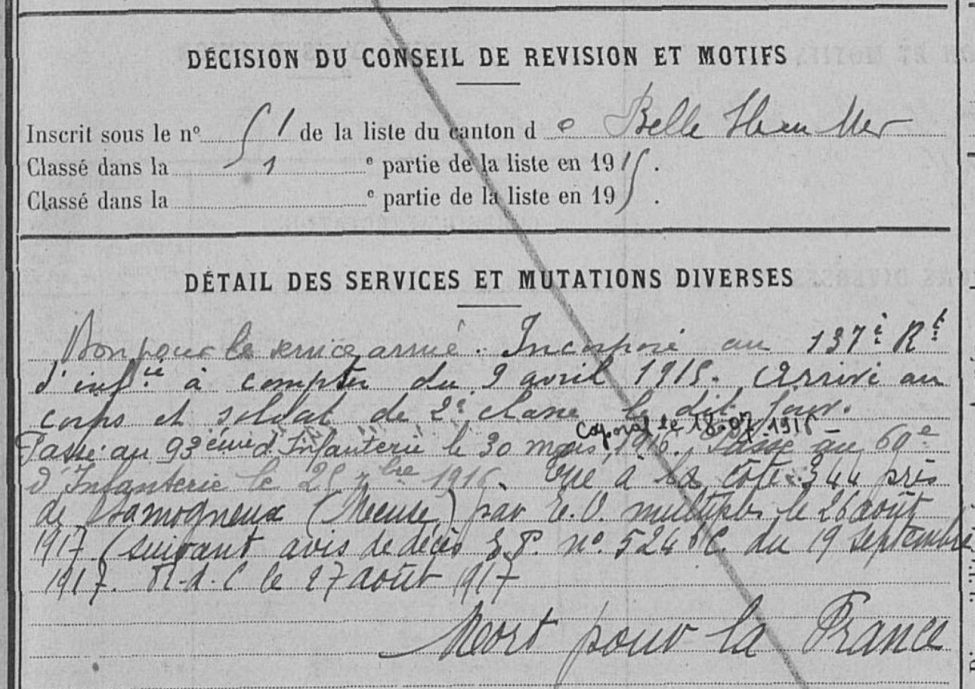 DÉCISION DU CONSEIL DE REVISION ET MOTIFS
Inscrit sous le nº 51 de la liste du canton d e Belle Ile en Mer
Classé dans la 1 e partie de la liste en 1915.
Classé dans la e partie de la liste en 19 .
DÉTAIL DES SERVICES ET MUTATIONS DIVERSES
Bon pour le service armé. Incorporé au 137è Rt
d'infie à compter du 9 avril 1915. Arrivé au
corps et soldat de 2è classe le dit jour.
Caporal le 18.07 1916 -
Passé au 93ème d'Infanterie le 30 mars 1916. Passé au 69e
d'Infanterie le 25 bre 1916. Tué à la côte 344 près
de Samogneux (Meuse) par E.O. multiples le 26 août
1917 (suivant avis de décès nº 524 du 19 septembre
1917. R.d.C le 27 août 1917
Mort pour la France